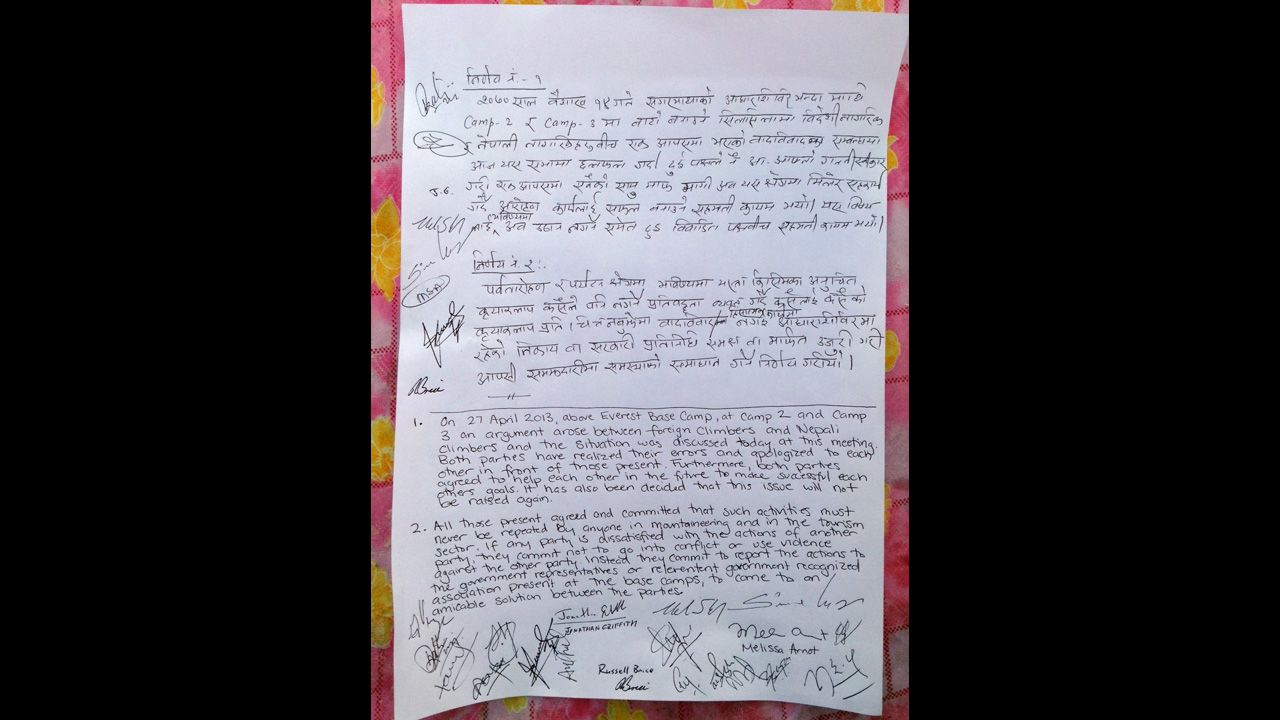 निर्णय नं.- १
२०७० साल बैशाख १४ गते सगरमाथाको आधारशिविर भन्दा माथि
Camp-2 र Camp-3 मा बाटो बनाउने सिलसिलामा विदेशी नागरिक
र नेपाली नागरिकहरुबीच एक आपसमा भएको वादविवादका सम्बन्धमा
आज यस सभामा छलफल गर्दा दुई पक्षले नै आ-आफ्नो गल्ती स्वीकार
J.G. गर्दै एक आपसमा माफ मागी अब यस क्षेत्रमा मिलेर सहकार्य
गर्दै आरोहण कार्यलाई सफल बनाउने सहमती कायम भयो। यस विषय
भविष्यमा
लाई अब नगर्ने समेत दुई विवादित पक्षबीच सहमती कायम भयो।
निर्णय नं. २:-
MSA
पर्वतारोहण र पर्यटन क्षेत्रमा भविष्यमा यस्ता किसिमका अनुचित
कृयाकलाप कसैले पनि नगर्ने प्रतिबद्धता व्यक्त गर्दै कसैलाई कसैको
कृयाकलाप प्रति चित्त नबुझेमा वादविवाद नगरी आधारशिविरमा
रहेको निकाय वा सरकारी प्रतिनिधि समक्ष वा मार्फत उजुरी गरी
आपसी समझदारीमा समस्याको समाधान गर्ने निर्णय गरीयो।
1. On 27 April 2013, above Everest Base Camp, at Camp 2 and Camp
3 an argument arose between foreign climbers and Nepali
climbers and the situation was discussed today at this meeting.
Both parties have realized their errors and apologized to each
other in front of those present. Furthermore, both parties
agreed to help each other in the future to make successful each
others goals. It has also been decided that this issue will not
be raised again.
2. All those present agreed and committed that such activities must
never be repeated by anyone in mountaineering and in the tourism
sector. If any party is dissatisfied with the actions of another
party, they commit not to go into conflict or use violence
against the other party instead they commit to report the actions to
the government representatives or relerentent government recognized
association present at the base camps, to come to an
amicable solution between the parties.
JONATHAN GRIFFITH
Melissa Arnot
Russell Brice